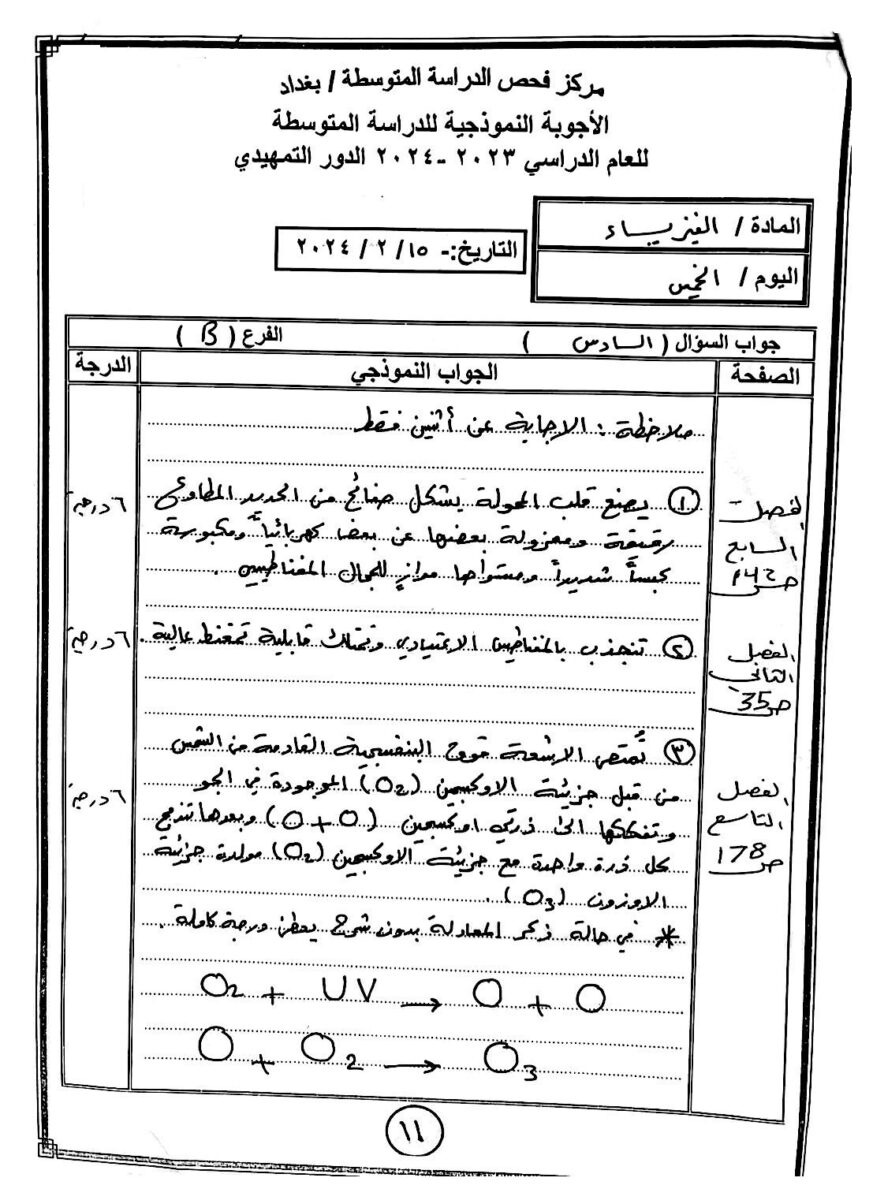 مركز فحص الدراسة المتوسطة / بغداد
الأجوبة النموذجية للدراسة المتوسطة
للعام الدراسي ٢٠٢٣ -٢٠٢٤ الدور التمهيدي
المادة / الفيزيـــاء
اليوم / الخميس
التاريخ:- ١٥ / ٢ / ٢٠٢٤
جواب السؤال ( السادس )
الفرع ( B )
الصفحة
الجواب النموذجي
الدرجة
ملاحظة : الاجابة عن أثنين فقط
الفصل
السابع
ص ١٤٢
① يصنع قلب المحولة بشكل صفائح من الحديد المطاوع
رقيقة ومعزولة بعضها عن بعض كهربائياً ومكبوسة
كبساً شديداً ومستواها موازٍ للمجال المغناطيسي .
٦ درجة
الفصل
الثاني
ص 35
② تنجذب بالمغناطيس الاعتيادي وتمتلك قابلية تمغنط عالية .
٦ درجة
الفصل
التاسع
ص 178
③ تُمتص الاشعة فوق البنفسجية القادمة من الشمس
من قبل جزيئة الاوكسجين (O₂) الموجودة في الجو
وتفككها الى ذرتي اوكسجين (O + O) وبعدها تندمج
كل ذرة واحدة مع جزيئة الاوكسجين (O₂) مولدة جزيئة
الاوزون (O₃).
٦ درجة
* في حالة ذكر المعادلة بدون شرح يعطى درجة كاملة .
O₂ + UV → O + O
O + O₂ → O₃
١١